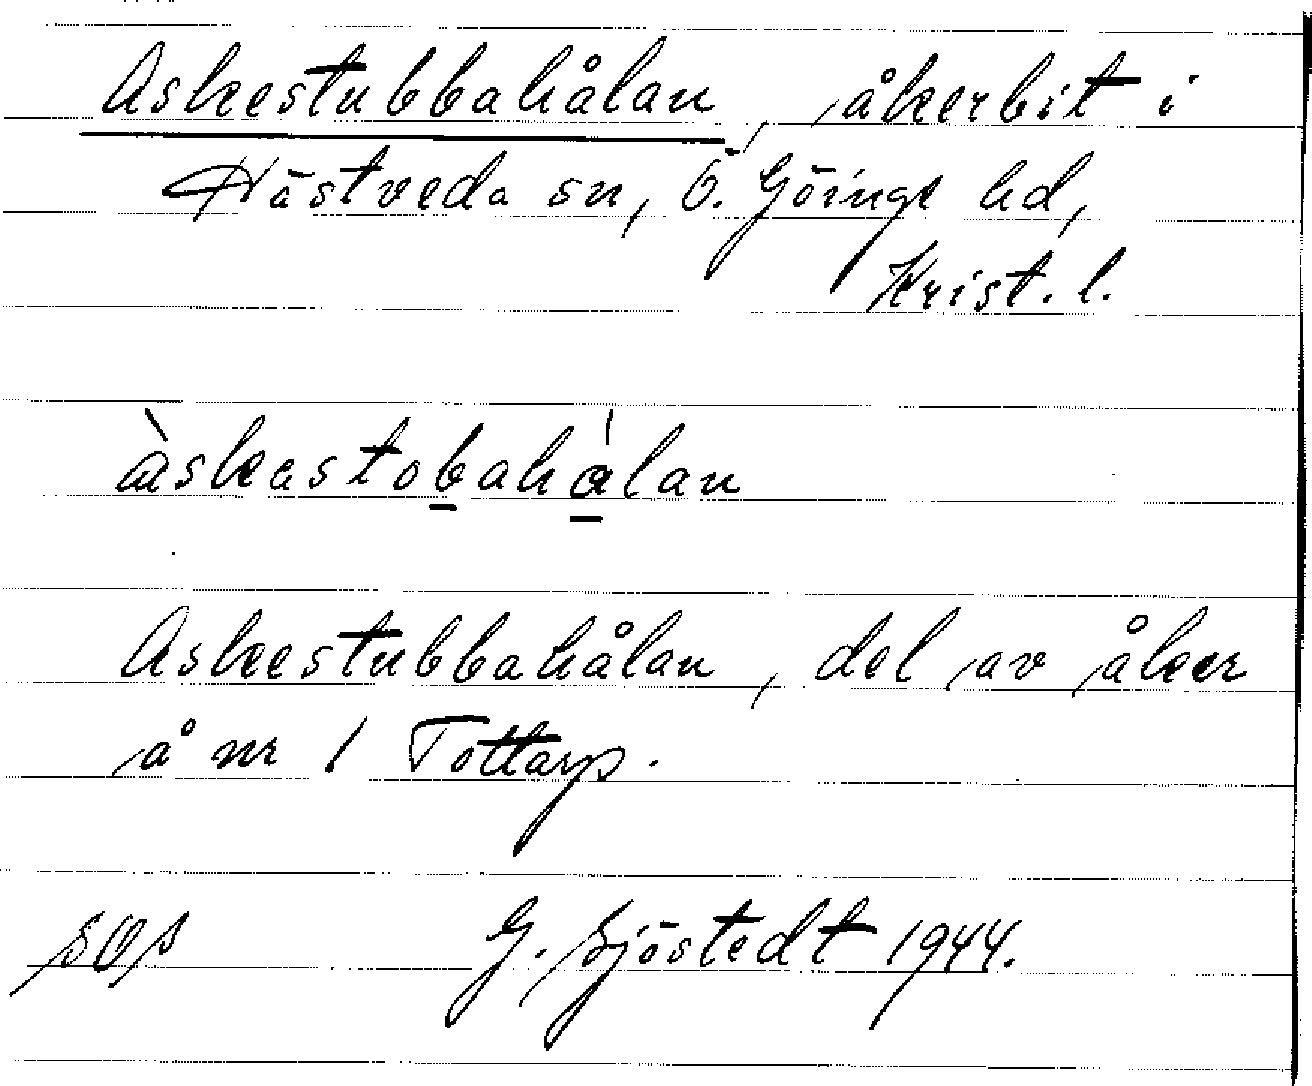 Askestubbahålan, åkerbit i
Hästveda sn, Ö. Göinge hd,
Krist. l.
àskastobahálan
Askestubbahålan, del av åker
å nr 1 Tottarp.
G. Sjöstedt 1944.